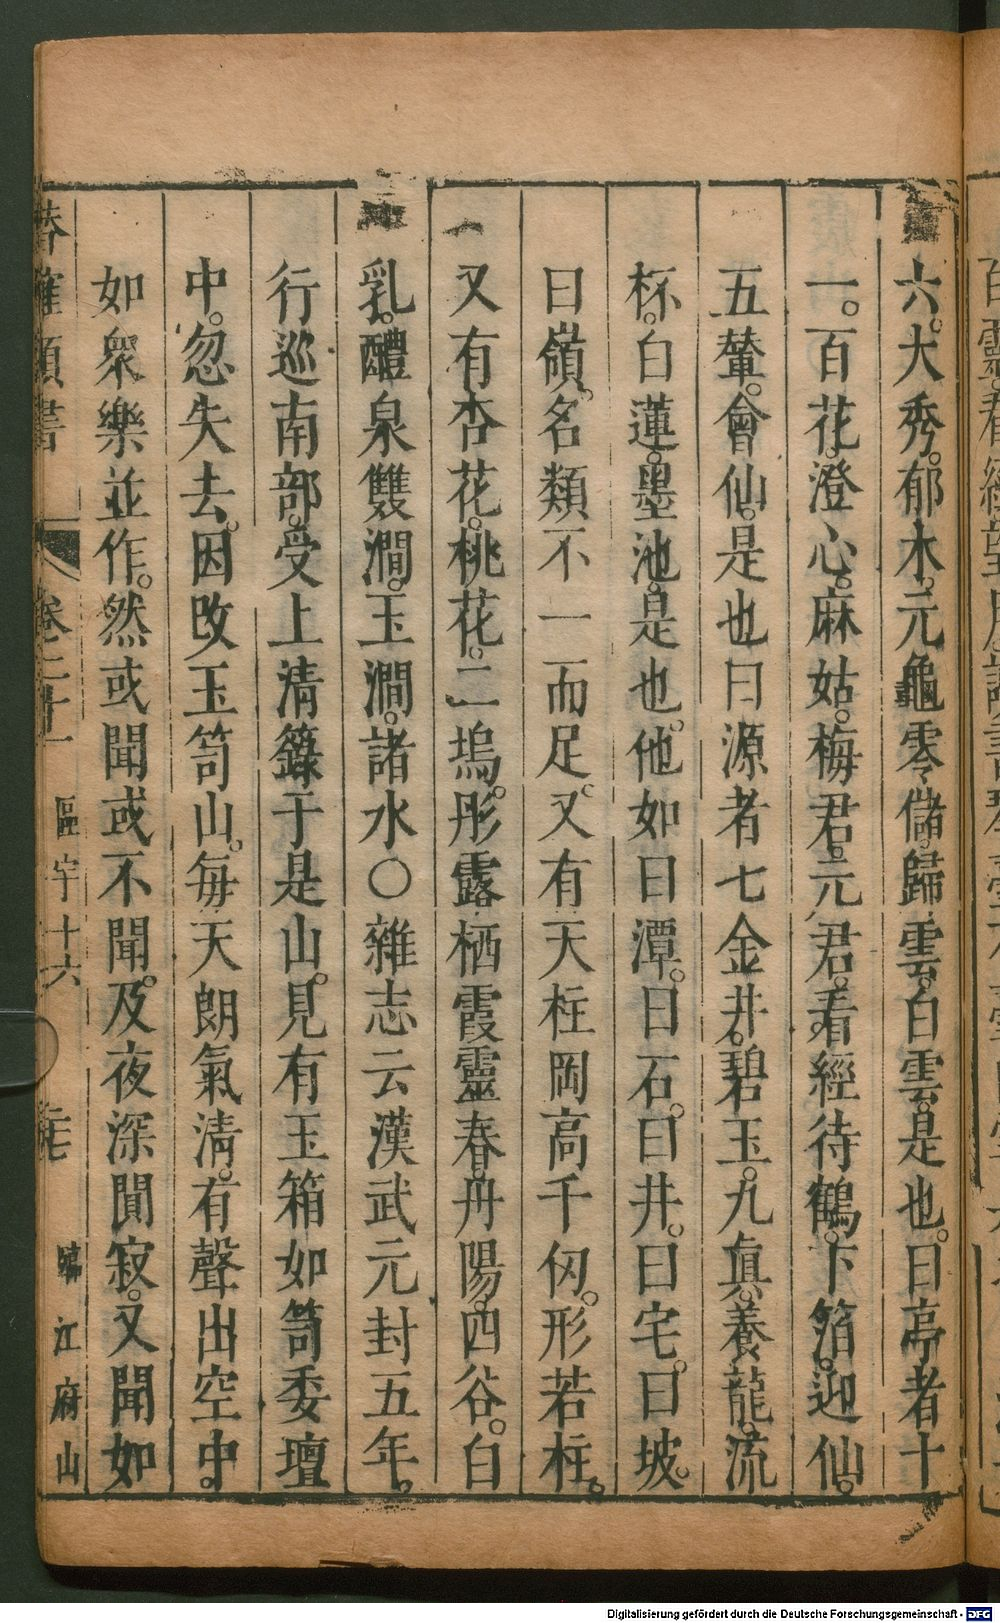 六。大秀。郁木。元龜零儲。歸雲。白雲。是也。曰亭者十
一。百花。澄心。麻姑。梅君。元君。看經。待鶴。下箔。迎仙。
五輦。會仙。是也曰源者七金井。碧玉。九眞。養龍。流
杯。白蓮。墨池。是也。他如曰潭。曰石。曰井。曰宅。曰坡。
曰嶺。名類不一而足。又有天柱岡高千仞。形若柱。
又有杏花。桃花。二塢。彤露栖霞靈春丹陽。四谷。白
乳。醴泉雙澗。玉澗。諸水○雜志云漢武元封五年。
行巡南部。受上清籙于是山。見有玉箱如笥委壇
中。忽失去。因改玉笥山。每天朗氣清。有聲出空中。
如衆樂並作。然或聞或不聞。及夜深聞寂。又聞如
類書 卷二十一 區宇十六 臨江府山
Digitalisierung gefördert durch die Deutsche Forschungsgemeinschaft - DFG